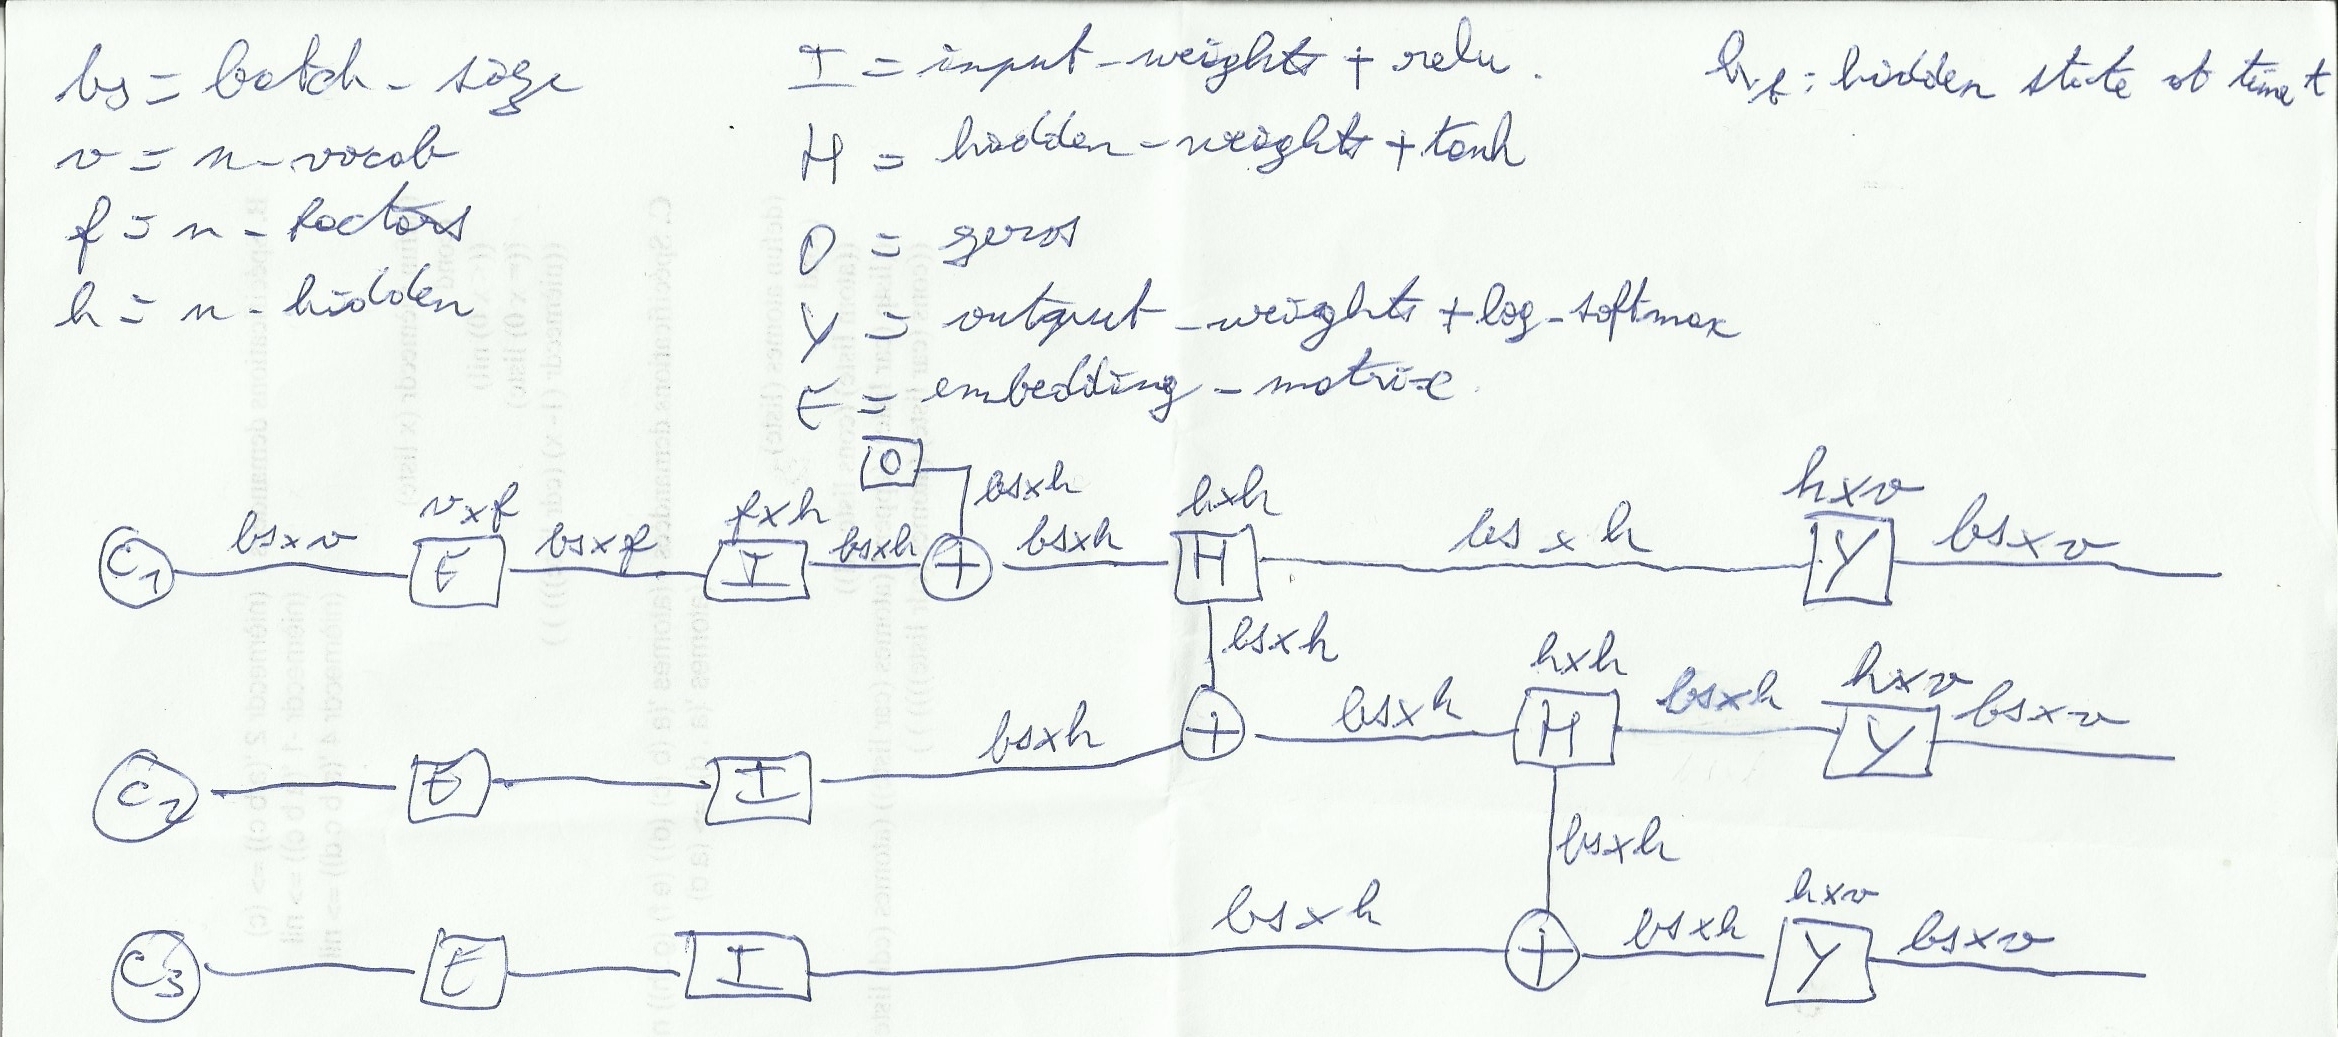 bs = batch-size
v = n-vocab
f = n-factors
h = n-hidden
I = input-weights + relu.
H = hidden-weights + tanh
O = zeros
Y = output-weights + log-softmax
E = embedding-matrix
h_t : hidden state at time t
O bsxh
vxf fxh hxh hxv
C1 bsxv E bsxf I bsxh + bsxh H bsxh Y bsxv
bsxh hxh hxv
C2 E I bsxh + bsxh H bsxh Y bsxv
bsxh hxv
C3 E I bsxh + bsxh Y bsxv